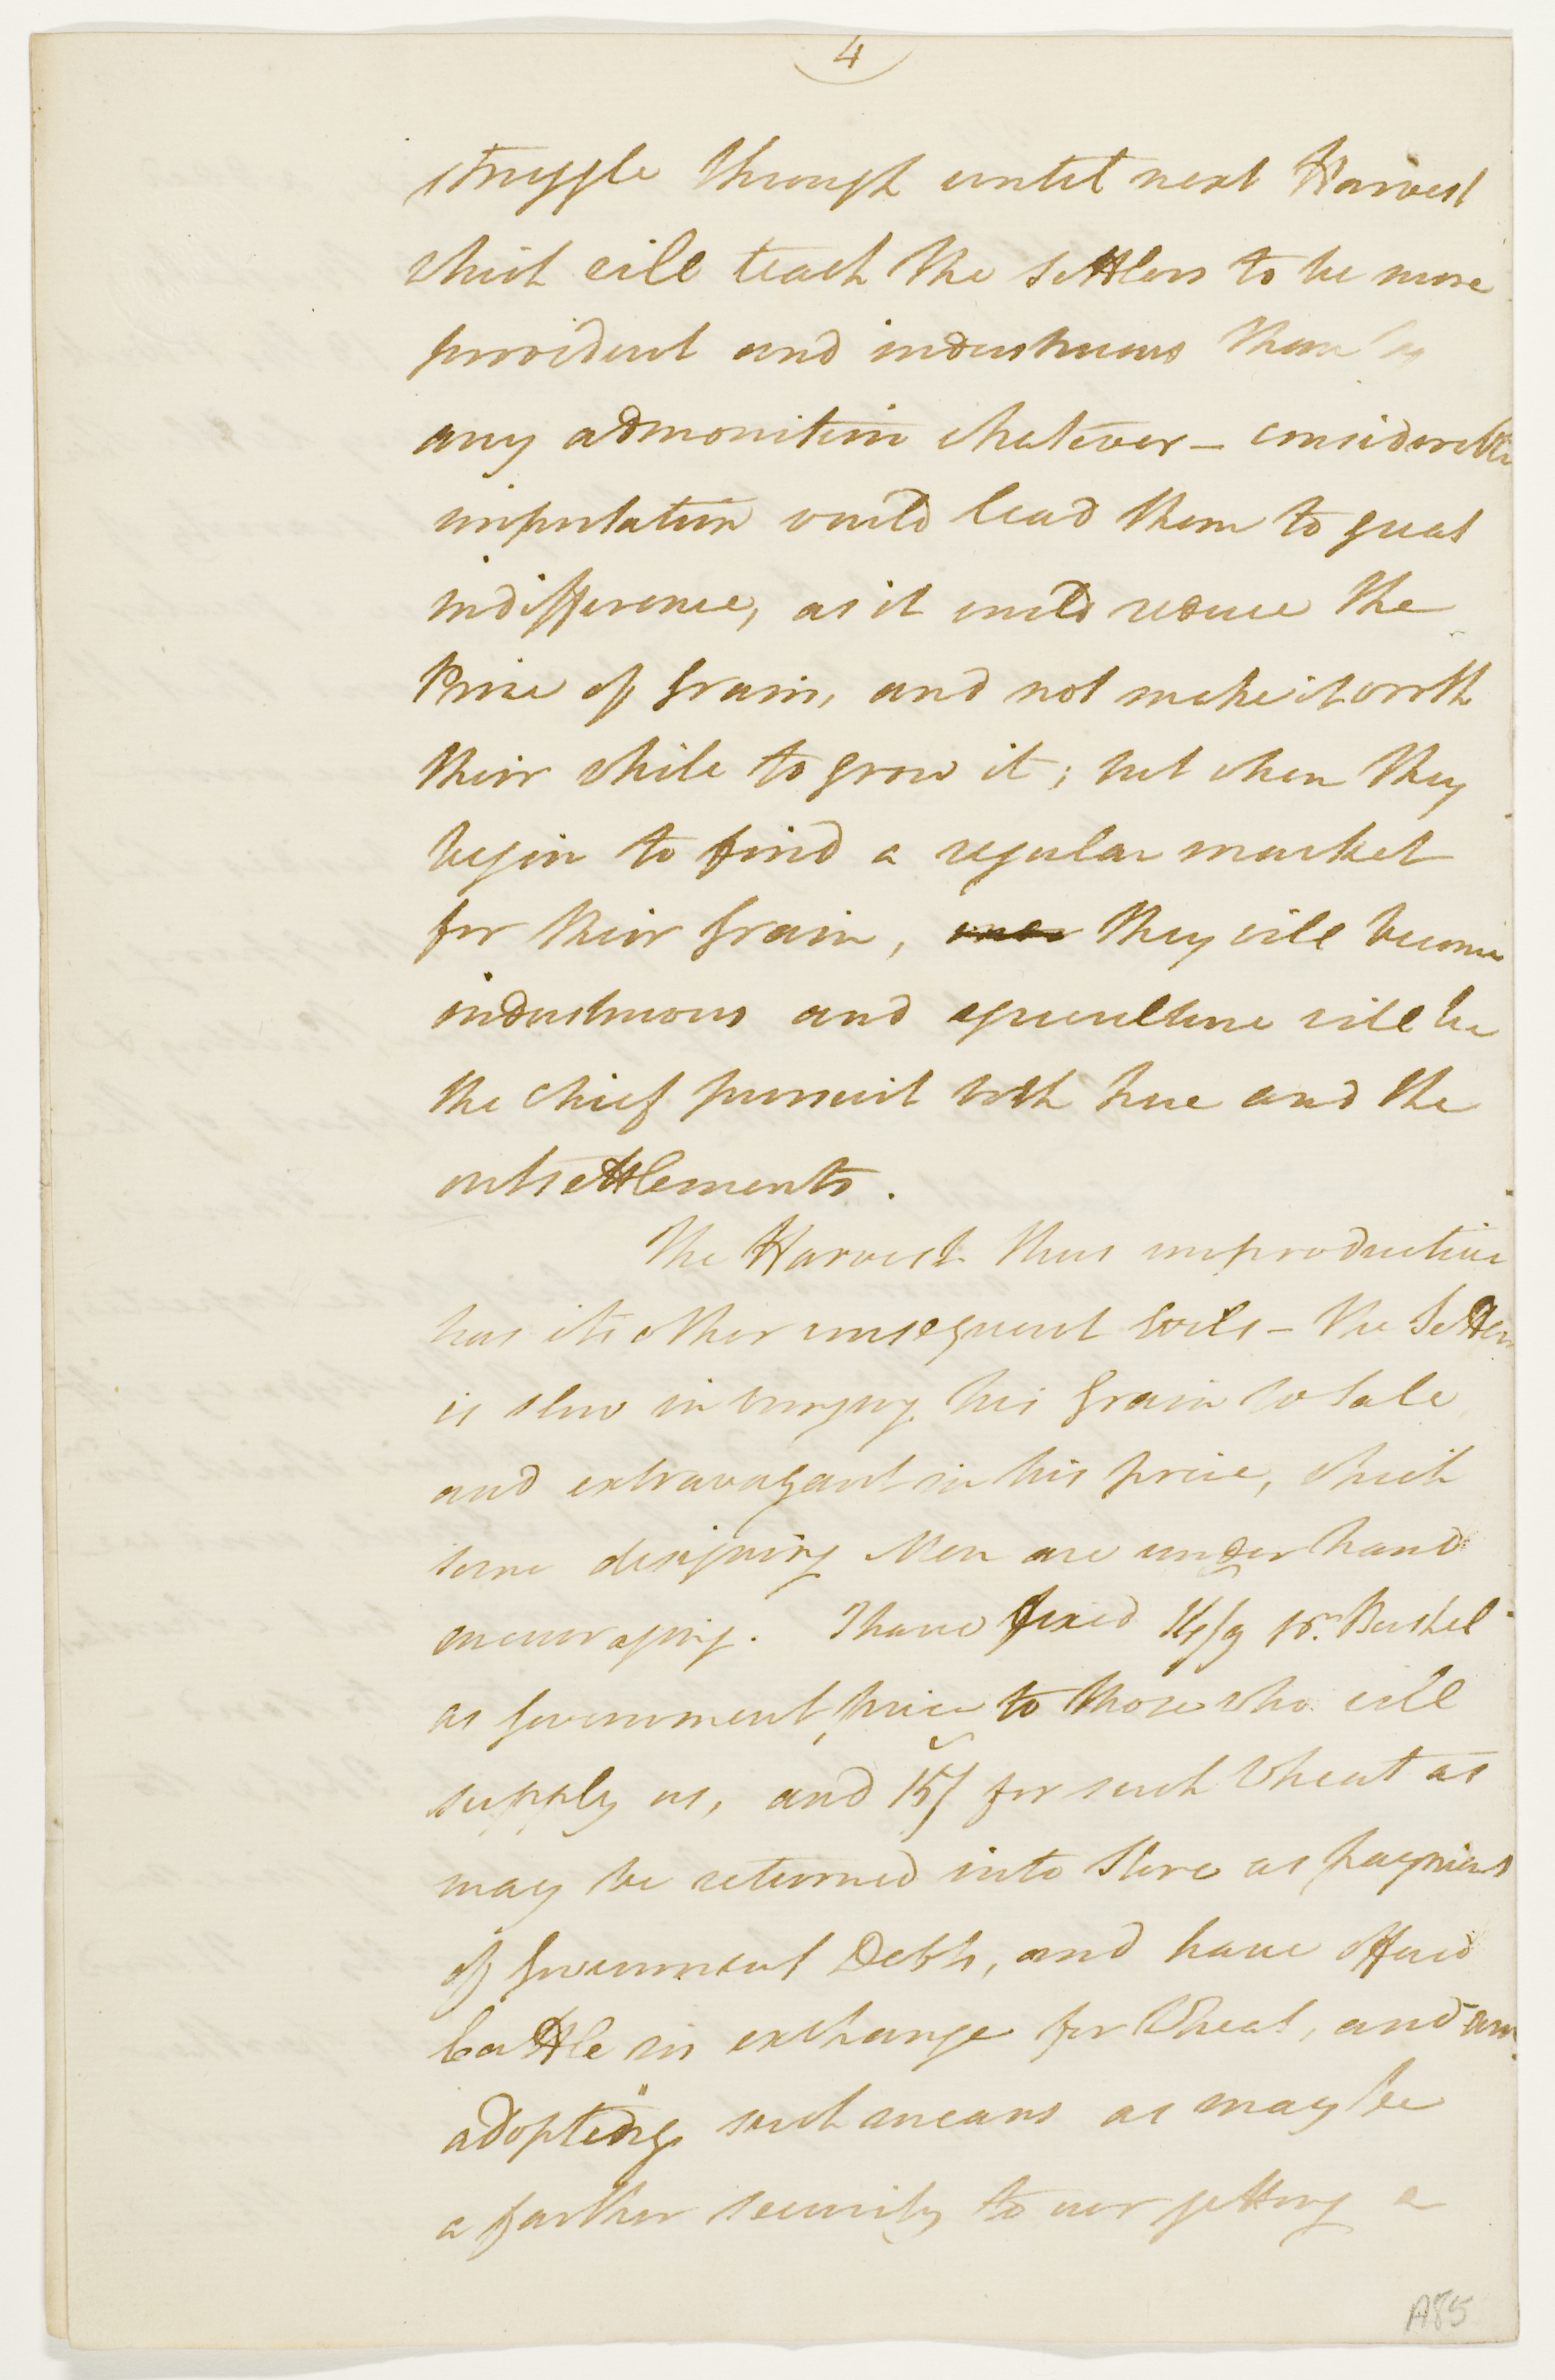 4
struggle through until next Harvest
which will teach the settlers to be more
provident and industruous than by
any admonition whatever – considerable
importation would lead them to great
indifference, as it would reduce the
Price of Grain, and not make it worth
their while to grow it; but when they
begin to find a regular market
for their Grain, they will become
industruous and agriculture will be
the chief pursuit both here and the
outsettlements.
The Harvest thus unproductive
has its other consequent evils – the Settler
is slow in bringing his Grain to Sale
and extravagant in his price, which
some designing Men are under hand
encouraging. I have fixed 14/9 pr. Bushel
as Government price to those who will
supply us, and 15/ for such Wheat as
may be returned into Store as payment
of Government Debts, and have offered
Cattle in exchange for Wheat, and am
adopting such means as may be
a farther security to our getting a
A85